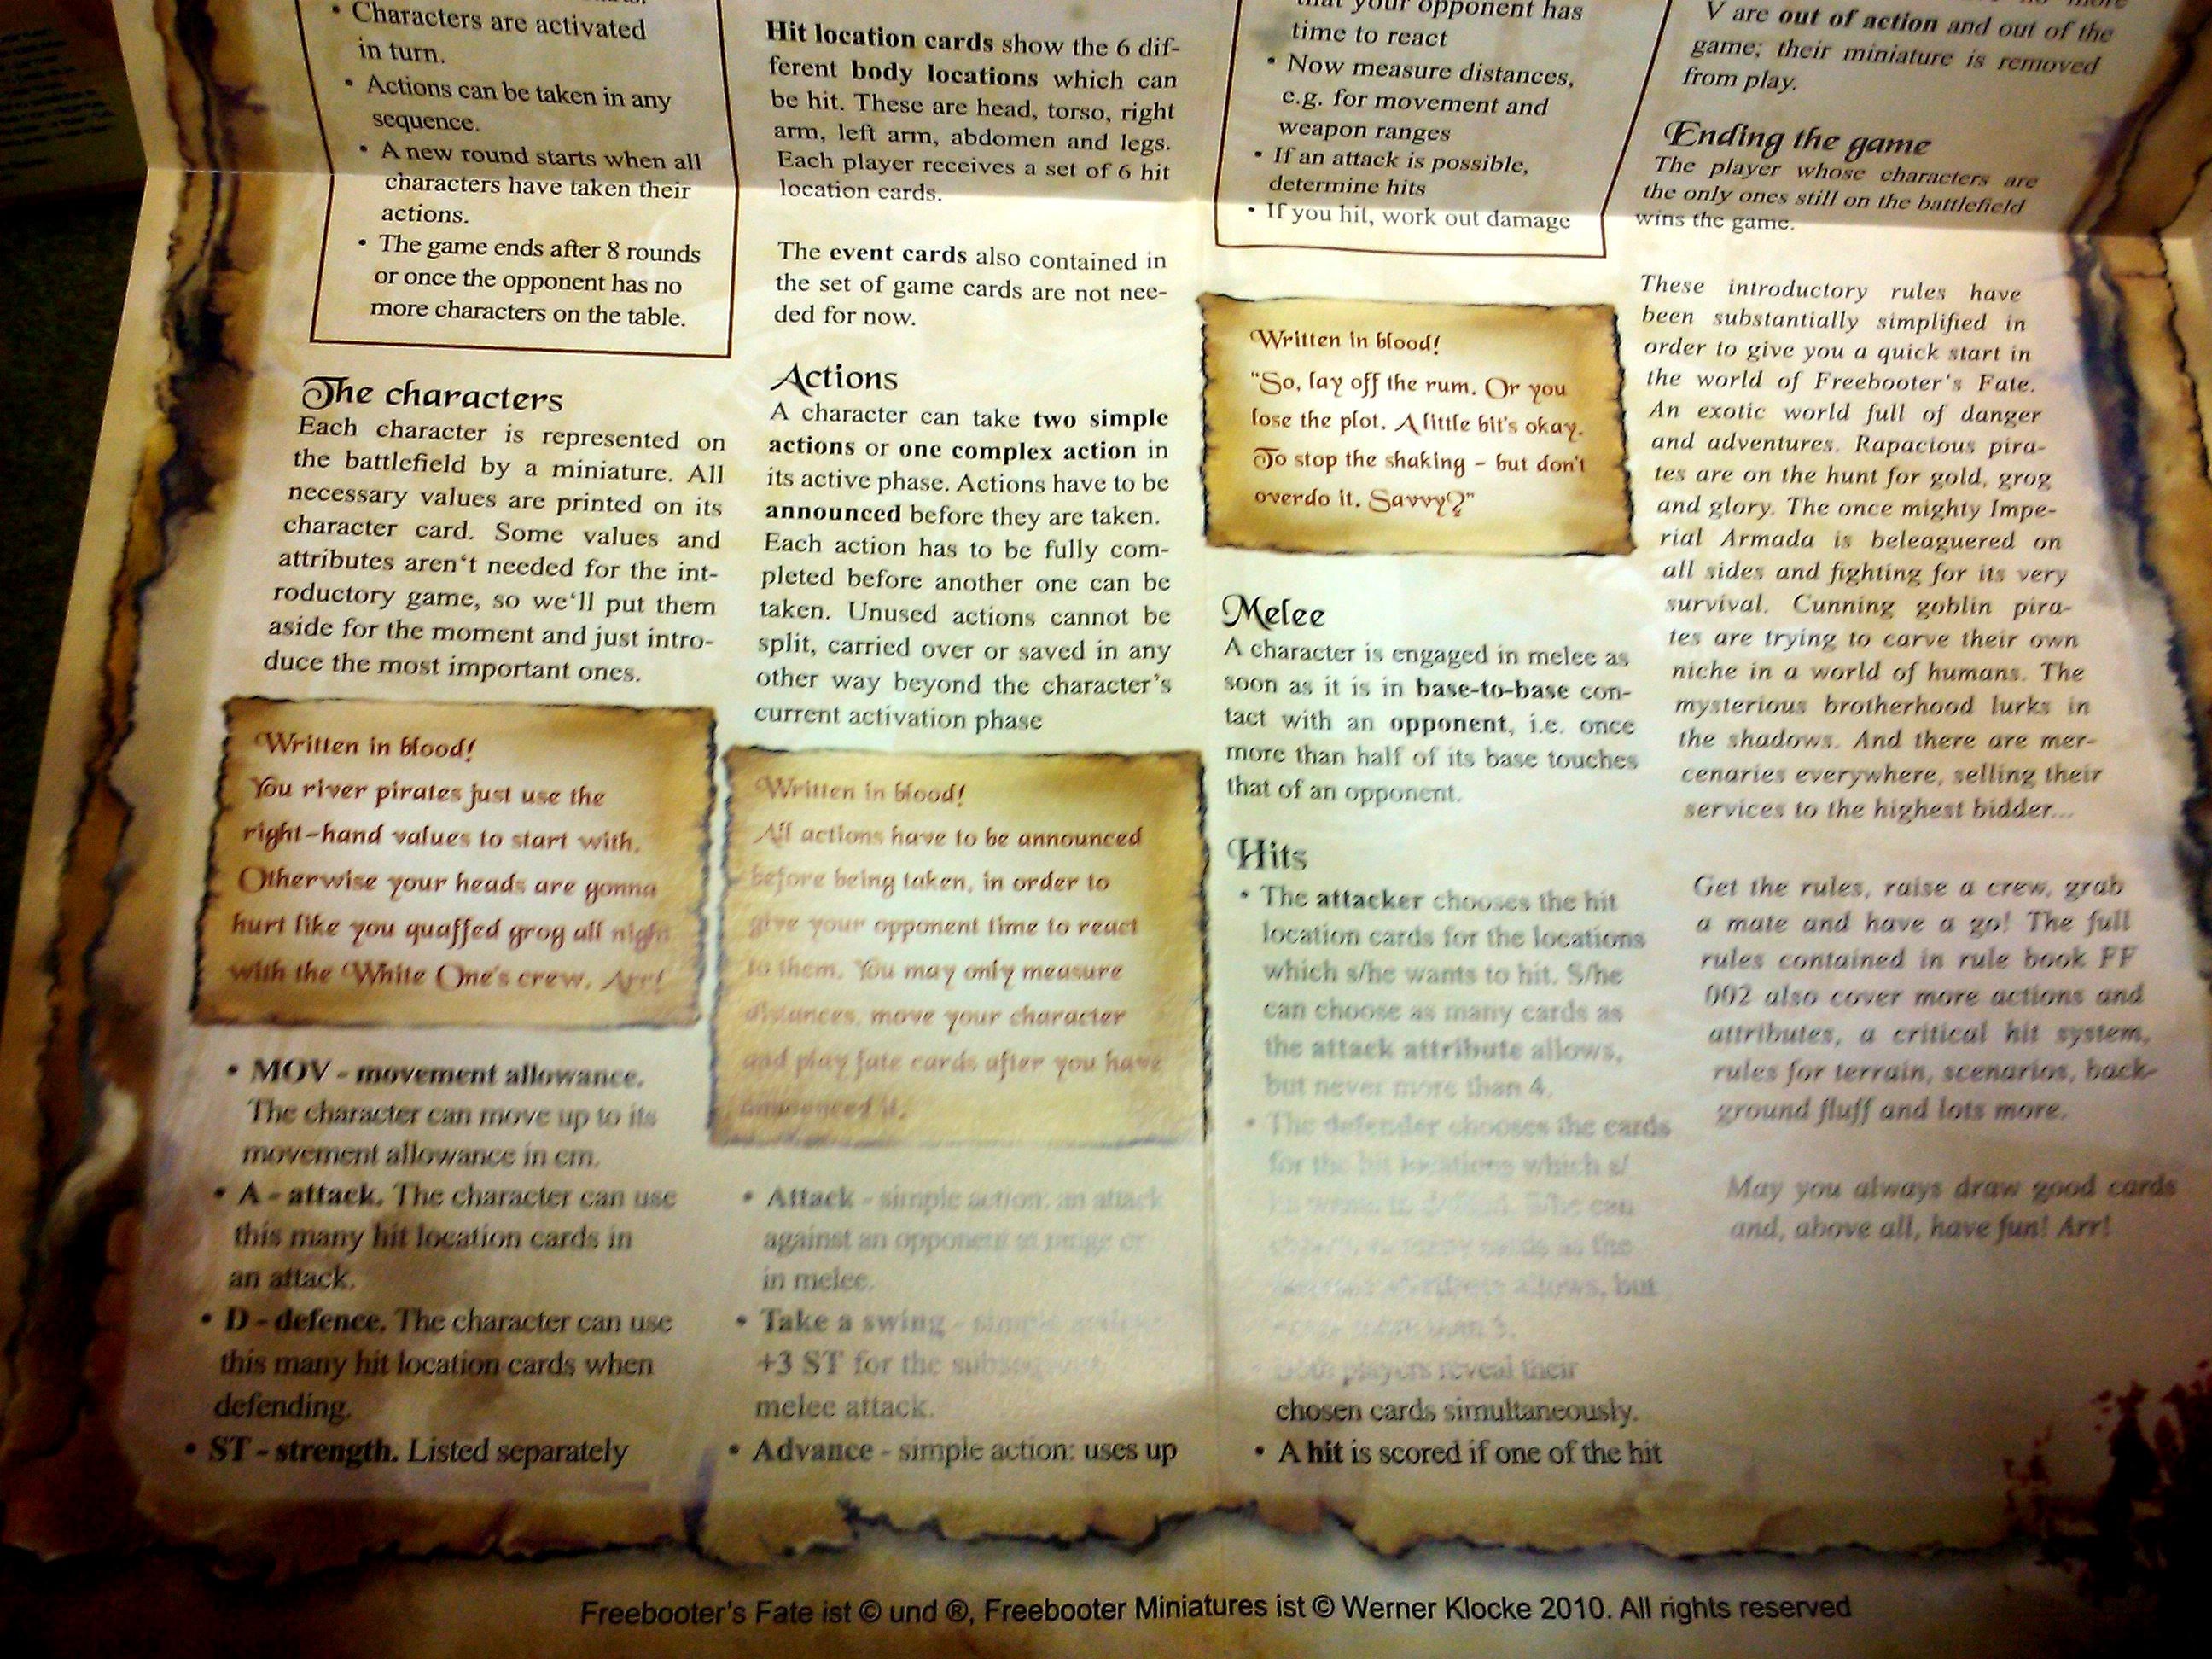 • Characters are activated
in turn.
• Actions can be taken in any
sequence.
• A new round starts when all
characters have taken their
actions.
• The game ends after 8 rounds
or once the opponent has no
more characters on the table.
The characters
Each character is represented on
the battlefield by a miniature. All
necessary values are printed on its
character card. Some values and
attributes aren‘t needed for the int-
roductory game, so we‘ll put them
aside for the moment and just intro-
duce the most important ones.
Written in blood!
You river pirates just use the
right-hand values to start with.
Otherwise your heads are gonna
hurt like you quaffed grog all night
with the White One's crew. Arr!
• MOV - movement allowance.
The character can move up to its
movement allowance in cm.
• A - attack. The character can use
this many hit location cards in
an attack.
• D - defence. The character can use
this many hit location cards when
defending.
• ST - strength. Listed separately
Hit location cards show the 6 dif-
ferent body locations which can
be hit. These are head, torso, right
arm, left arm, abdomen and legs.
Each player receives a set of 6 hit
location cards.
The event cards also contained in
the set of game cards are not nee-
ded for now.
Actions
A character can take two simple
actions or one complex action in
its active phase. Actions have to be
announced before they are taken.
Each action has to be fully com-
pleted before another one can be
taken. Unused actions cannot be
split, carried over or saved in any
other way beyond the character's
current activation phase
Written in blood!
All actions have to be announced
before being taken, in order to
give your opponent time to react
to them. You may only measure
distances, move your character
and play fate cards after you have
announced it.
• Attack - simple action: an attack
against an opponent at range or
in melee.
• Take a swing - simple
+3 ST for the subsequent
melee attack.
• Advance - simple action: uses up
that your opponent has
time to react
• Now measure distances,
e.g. for movement and
weapon ranges
• If an attack is possible,
determine hits
• If you hit, work out damage
Written in blood!
"So, lay off the rum. Or you
lose the plot. A little bit's okay.
To stop the shaking - but don't
overdo it. Savvy?"
Melee
A character is engaged in melee as
soon as it is in base-to-base con-
tact with an opponent, i.e. once
more than half of its base touches
that of an opponent.
Hits
• The attacker chooses the hit
location cards for the locations
which s/he wants to hit. S/he
can choose as many cards as
the attack attribute allows,
but never more than 4.
• The defender chooses the cards
for the hit locations which s/
he wants to defend. S/he can
cards as the
allows, but
than
Both players reveal their
chosen cards simultaneously.
• A hit is scored if one of the hit
V are out of action and out of the
game; their miniature is removed
from play.
Ending the game
The player whose characters are
the only ones still on the battlefield
wins the game.
These introductory rules have
been substantially simplified in
order to give you a quick start in
the world of Freebooter's Fate.
An exotic world full of danger
and adventures. Rapacious pira-
tes are on the hunt for gold, grog
and glory. The once mighty Impe-
rial Armada is beleaguered on
all sides and fighting for its very
survival. Cunning goblin pira-
tes are trying to carve their own
niche in a world of humans. The
mysterious brotherhood lurks in
the shadows. And there are mer-
cenaries everywhere, selling their
services to the highest bidder...
Get the rules, raise a crew, grab
a mate and have a go! The full
rules contained in rule book FF
002 also cover more actions and
attributes, a critical hit system,
rules for terrain, scenarios, back-
ground fluff and lots more.
May you always draw good cards
and, above all, have fun! Arr!
Freebooter's Fate ist © und ®, Freebooter Miniatures ist © Werner Klocke 2010. All rights reserved